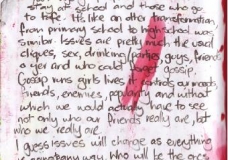 stay at school and those who go
to tafe. It's like an other transformation,
from primary school to high school was
similar. Issues are pretty much the usual
cliques, sex, drinking/parties, guys, friends
a year and who could gossip.
Gossip runs girls lives it controls our moods,
friends, enemies, popularity and without
which we would actually have to see
not only who our friends really are, but
who we really are.
I guess issues will change as everything
way. Who will be the one